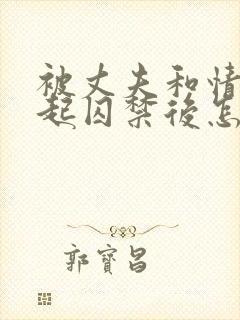 被丈夫和情
起囚禁後怎
郭寶昌